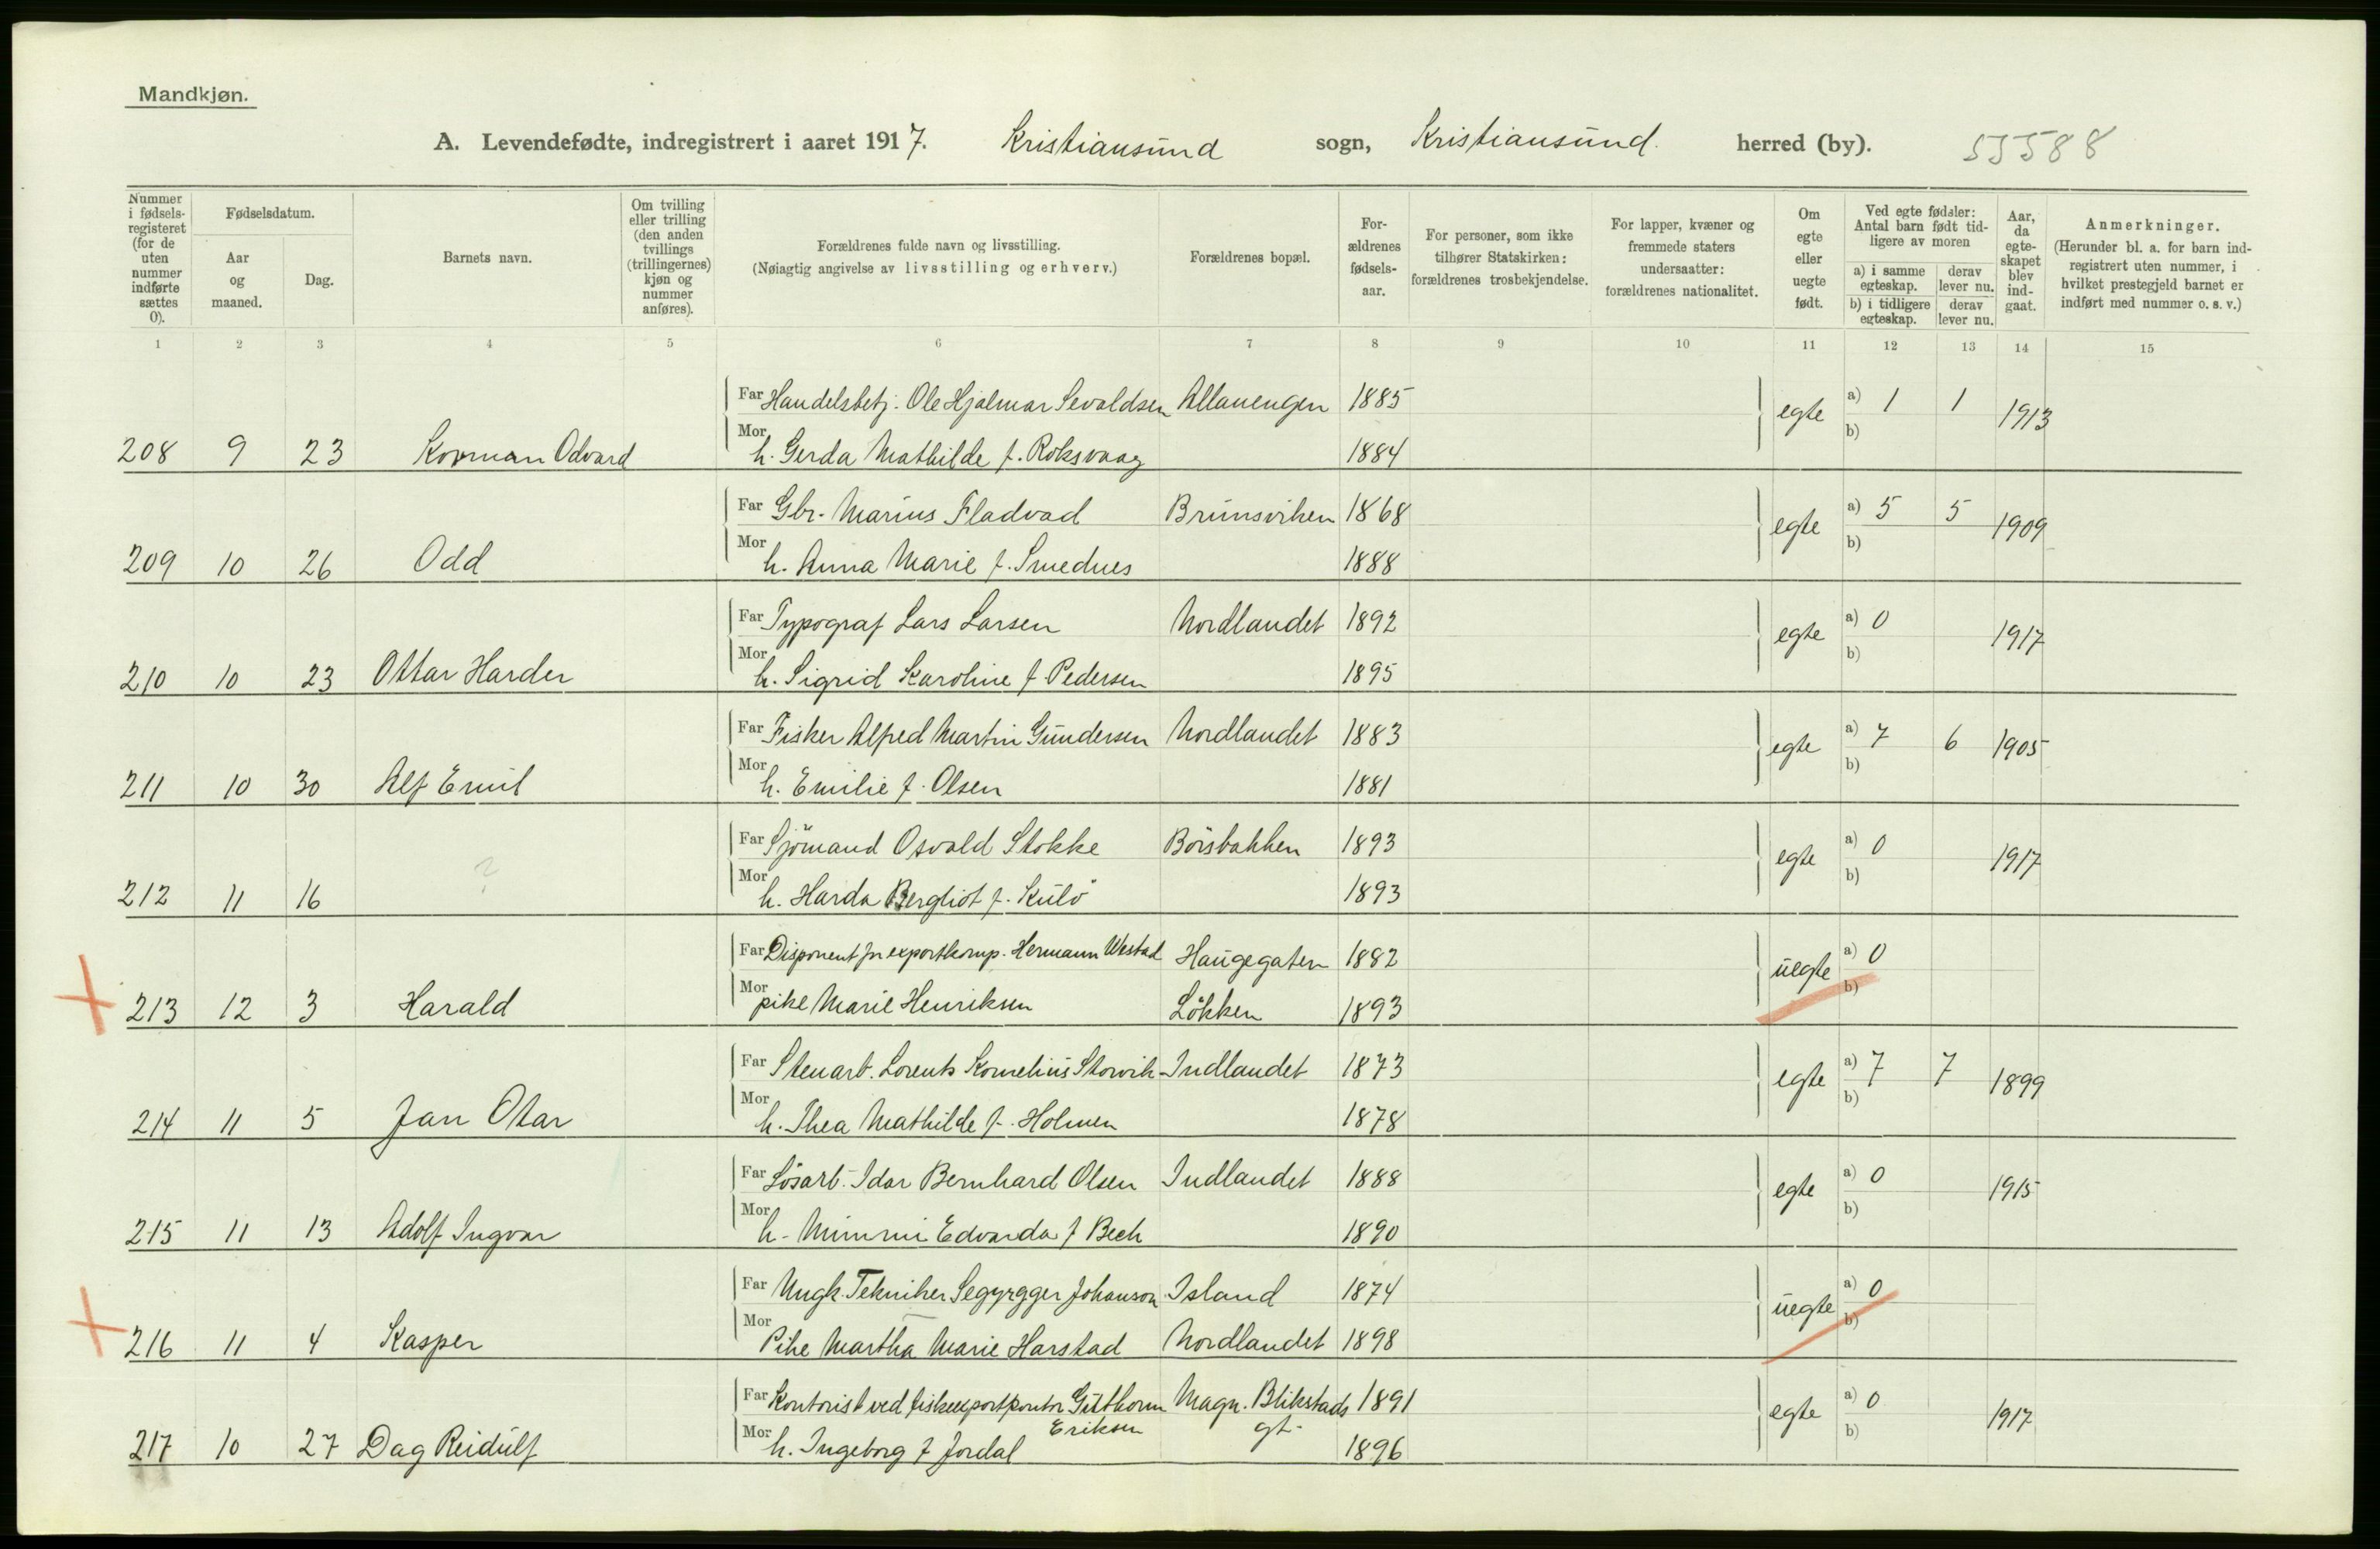 Mandkjøn.
A. Levendefødte, indregistrert i aaret 1917. Kristiansund sogn, Kristiansund herred (by). 55588
Nummer i fødselsregisteret (for de uten nummer indførte sættes 0).
Fødselsdatum.
Aar og maaned.
Dag.
Barnets navn.
Om tvilling eller trilling (den anden tvillings (trillingernes) kjøn og nummer anføres).
Forældrenes fulde navn og livsstilling.
(Nøiagtig angivelse av livsstilling og erhverv.)
Forældrenes bopæl.
Forældrenes fødselsaar.
For personer, som ikke tilhører Statskirken: forældrenes trosbekjendelse.
For lapper, kvæner og fremmede staters undersaatter: forældrenes nationalitet.
Om egte eller uegte født.
Ved egte fødsler: Antal barn født tidligere av moren
a) i samme egteskap. derav lever nu.
b) i tidligere egteskap. derav lever nu.
Aar, da egteskapet blev indgaat.
Anmerkninger.
(Herunder bl. a. for barn indregistrert uten nummer, i hvilket prestegjeld barnet er indført med nummer o. s. v.)
1 2 3 4 5 6 7 8 9 10 11 12 13 14 15
Far Handelsbetj. Ole Hjalmar Sevaldsen Allanengen 1885 egte a) 1 1 1913
208 9 23 Korman Odvard Mor h. Gerda Mathilde f. Roksvaag 1884 b)
Far Gbr. Marius Fladvad Brunsviken 1868 egte a) 5 5 1909
209 10 26 Odd Mor h. Anna Marie f. Smednes 1888 b)
Far Typograf Lars Larsen Nordlandet 1892 egte a) 0 1917
210 10 23 Ottar Harder Mor h. Sigrid Karoline f. Pedersen 1895 b)
Far Fisker Alfred Martin Gundersen Nordlandet 1883 egte a) 7 6 1905
211 10 30 Alf Emil Mor h. Emilie f. Olsen 1881 b)
Far Sjömand Osvald Stokke Börsbakken 1893 egte a) 0 1917
212 11 16 ? Mor h. Harda Bergliot f. Kulö 1893 b)
Far Disponent for exportkomp. Hermann Westad Haugegaten 1882 uegte a) 0
213 12 3 Harald Mor pike Marie Henriksen Lökken 1893 b)
Far Stenarb. Lorents Kornelius Storvik Indlandet 1873 egte a) 7 7 1899
214 11 5 Jan Otar Mor h. Thea Mathilde f. Holmen 1878 b)
Far Lösarb. Idar Bernhard Olsen Indlandet 1888 egte a) 0 1915
215 11 13 Adolf Ingvar Mor h. Mimmi Edvarda f Bech 1890 b)
Far Ungk. Tekniker Segyrgger Johanson Island 1874 uegte a) 0
216 11 4 Kasper Mor Pike Martha Marie Harstad Nordlandet 1898 b)
Far Kontorist ved fiskeexportkontor Gutthorm Magn. Blikstads 1891 egte a) 0 1917
Eriksen gt.
217 10 27 Dag Reidulf Mor h. Ingeborg f Jordal 1896 b)